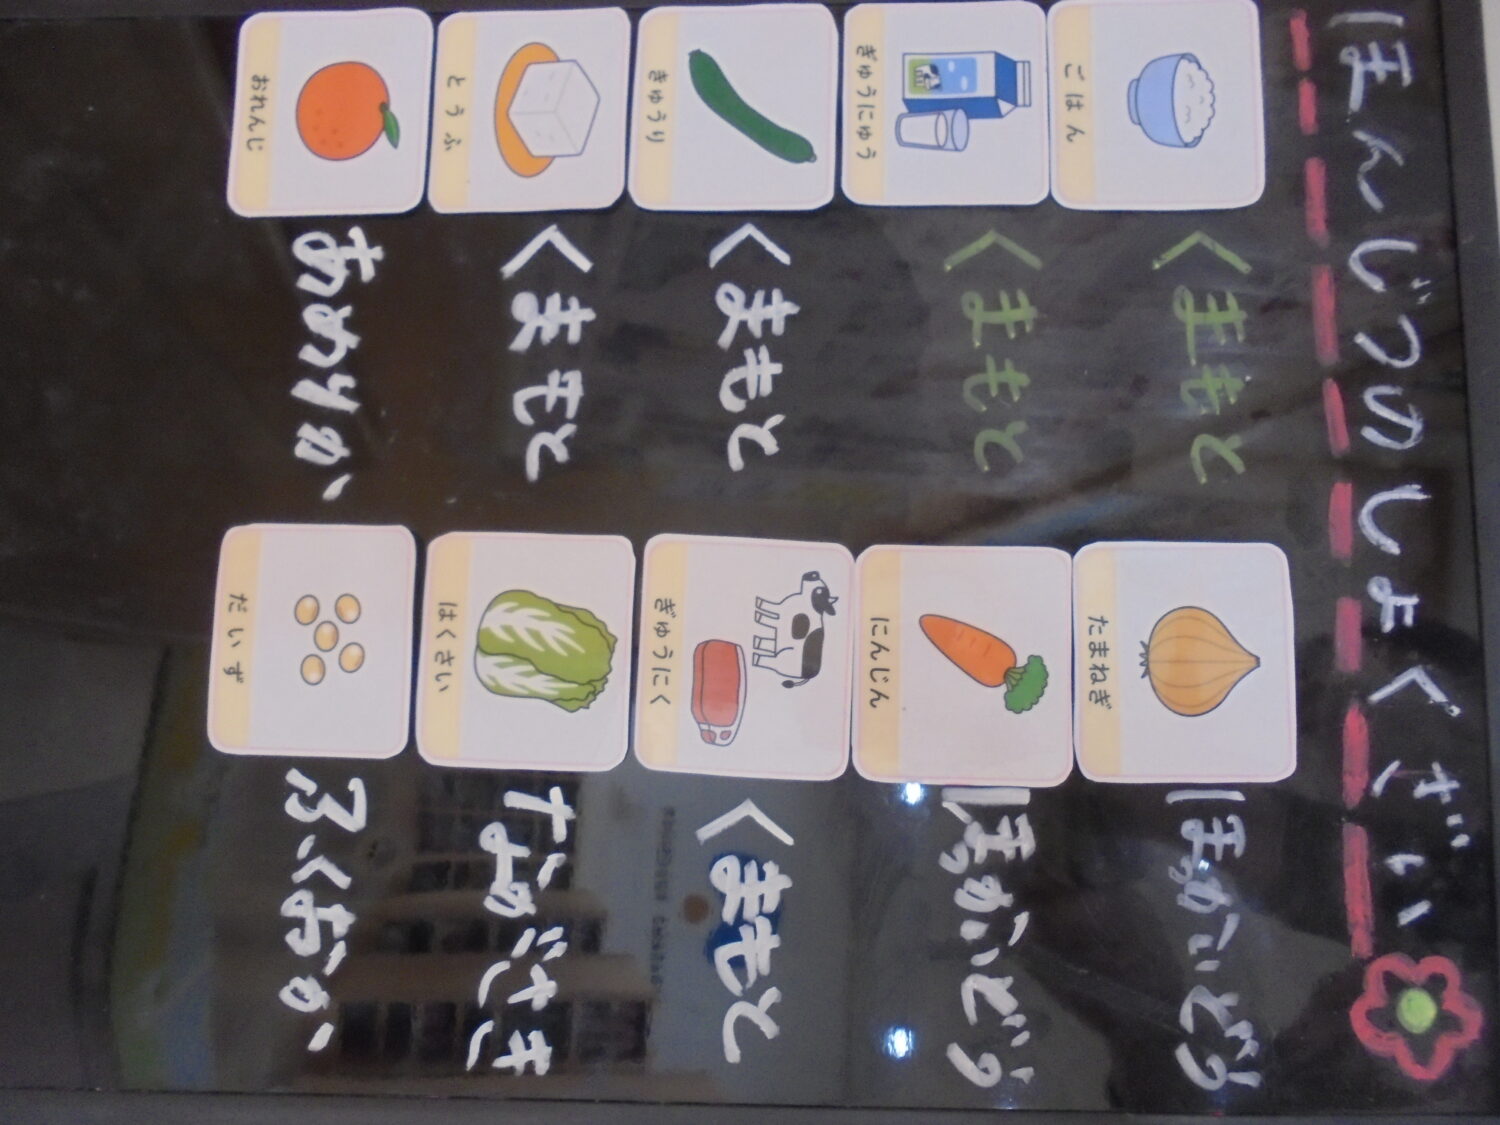 ほんじつのしょくざい
ごはん くまもと たまねぎ ほっかいどう
ぎゅうにゅう くまもと にんじん ほっかいどう
きゅうり くまもと ぎゅうにく くまもと
とうふ くまもと はくさい ながさき
おれんじ あめりか だいず ふくおか